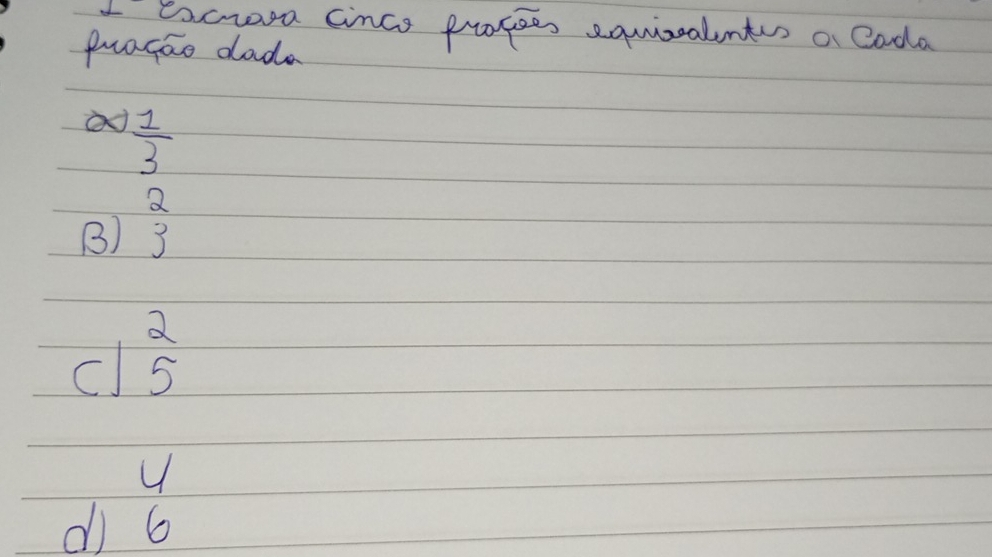 1 Escreva cinco frações equivalentes a cada
fração dada
a) 1
3
2
B) 3
2
c) 5
4
d) 6